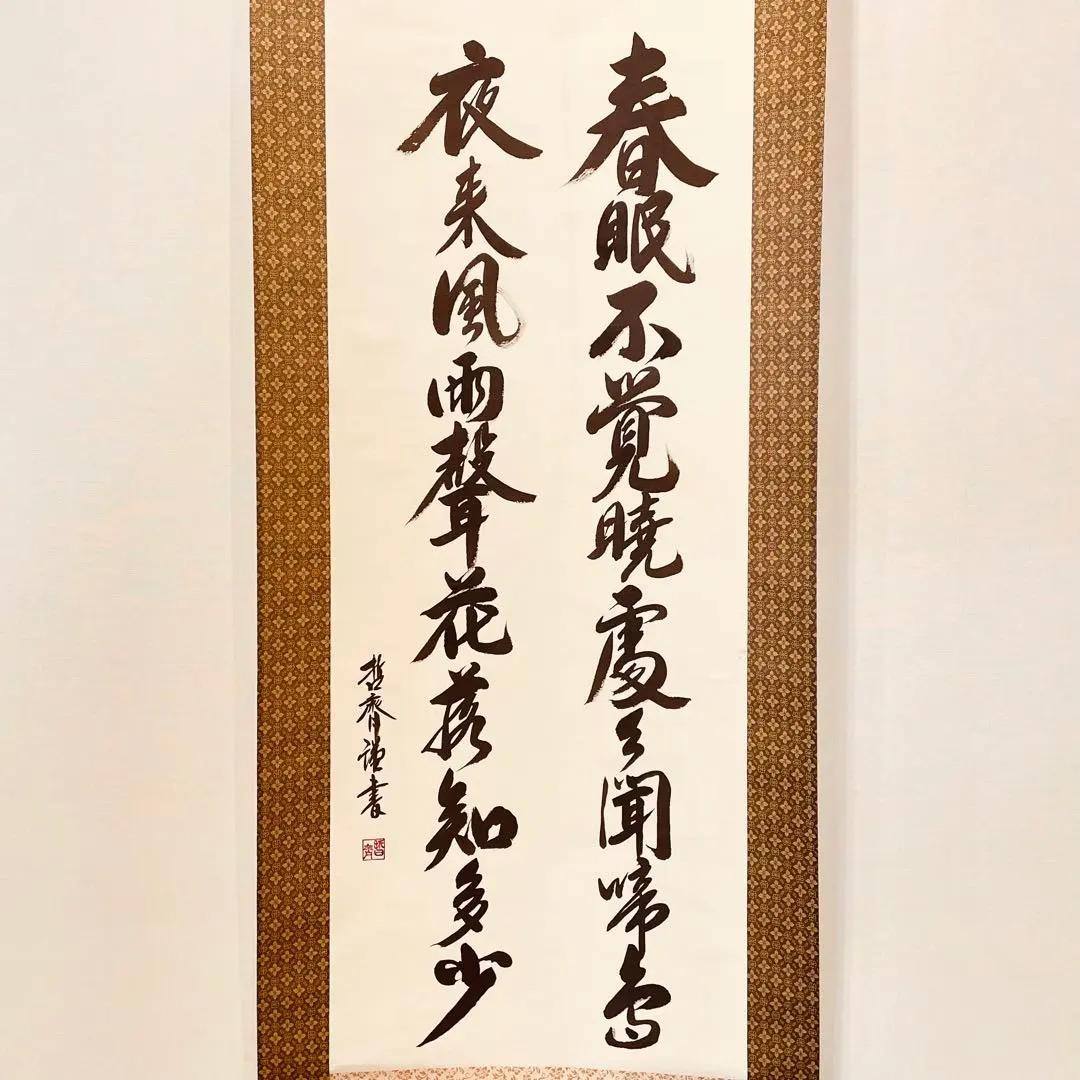 春眠不覚曉處々聞啼鳥
夜来風雨聲花落知多少
哲齊謹書
哲齊